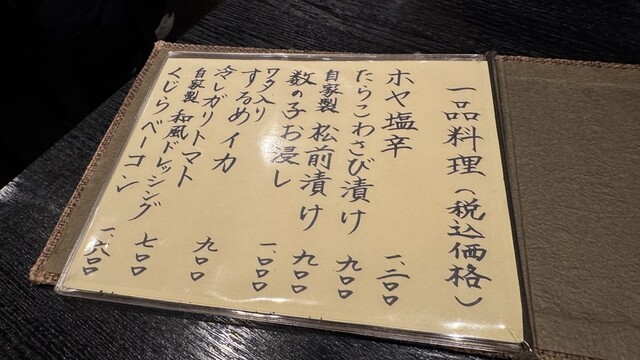 一品料理(税込価格)
ホヤ塩辛 一、二〇〇
たらこわさび漬け 九〇〇
自家製 松前漬け 九〇〇
数の子お浸し 一、〇〇〇
ワタ入り
するめイカ 九〇〇
冷しガリトマト
自家製 和風ドレッシング 七〇〇
くじらベーコン 一、六〇〇